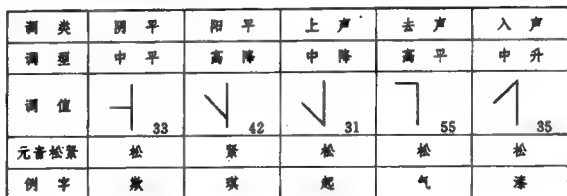 调类 阴平 阳平 上声 去声 入声
调型 中平 高降 中降 高平 中升
调值 33 42 31 55 35
元音松紧 松 紧 松 松 松
例字 欺 琪 起 气 漆